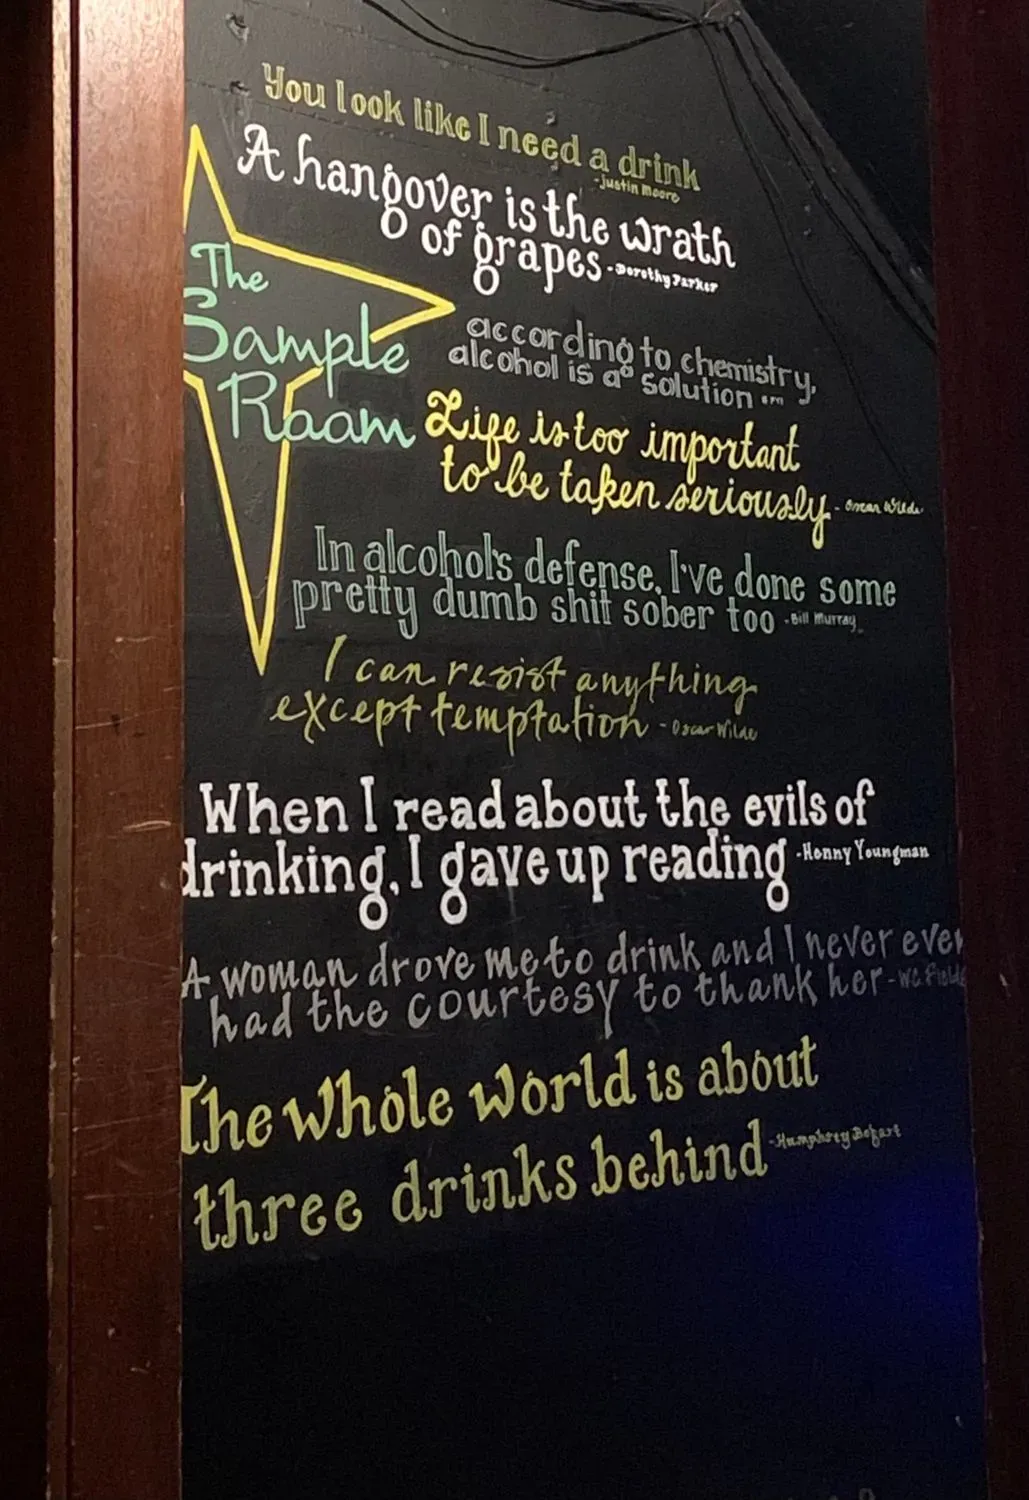 You look like I need a drink
-Justin Moore
A hangover is the wrath
of grapes -Dorothy Parker
The
Sample
Room
according to chemistry,
alcohol is a solution
Life is too important
to be taken seriously - Oscar Wilde
In alcohol's defense, I've done some
pretty dumb shit sober too -Bill Murray
I can resist anything
except temptation - Oscar Wilde
When I read about the evils of
drinking, I gave up reading -Henny Youngman
A woman drove me to drink and I never even
had the courtesy to thank her -W.C. Fields
The whole world is about
three drinks behind -Humphrey Bogart